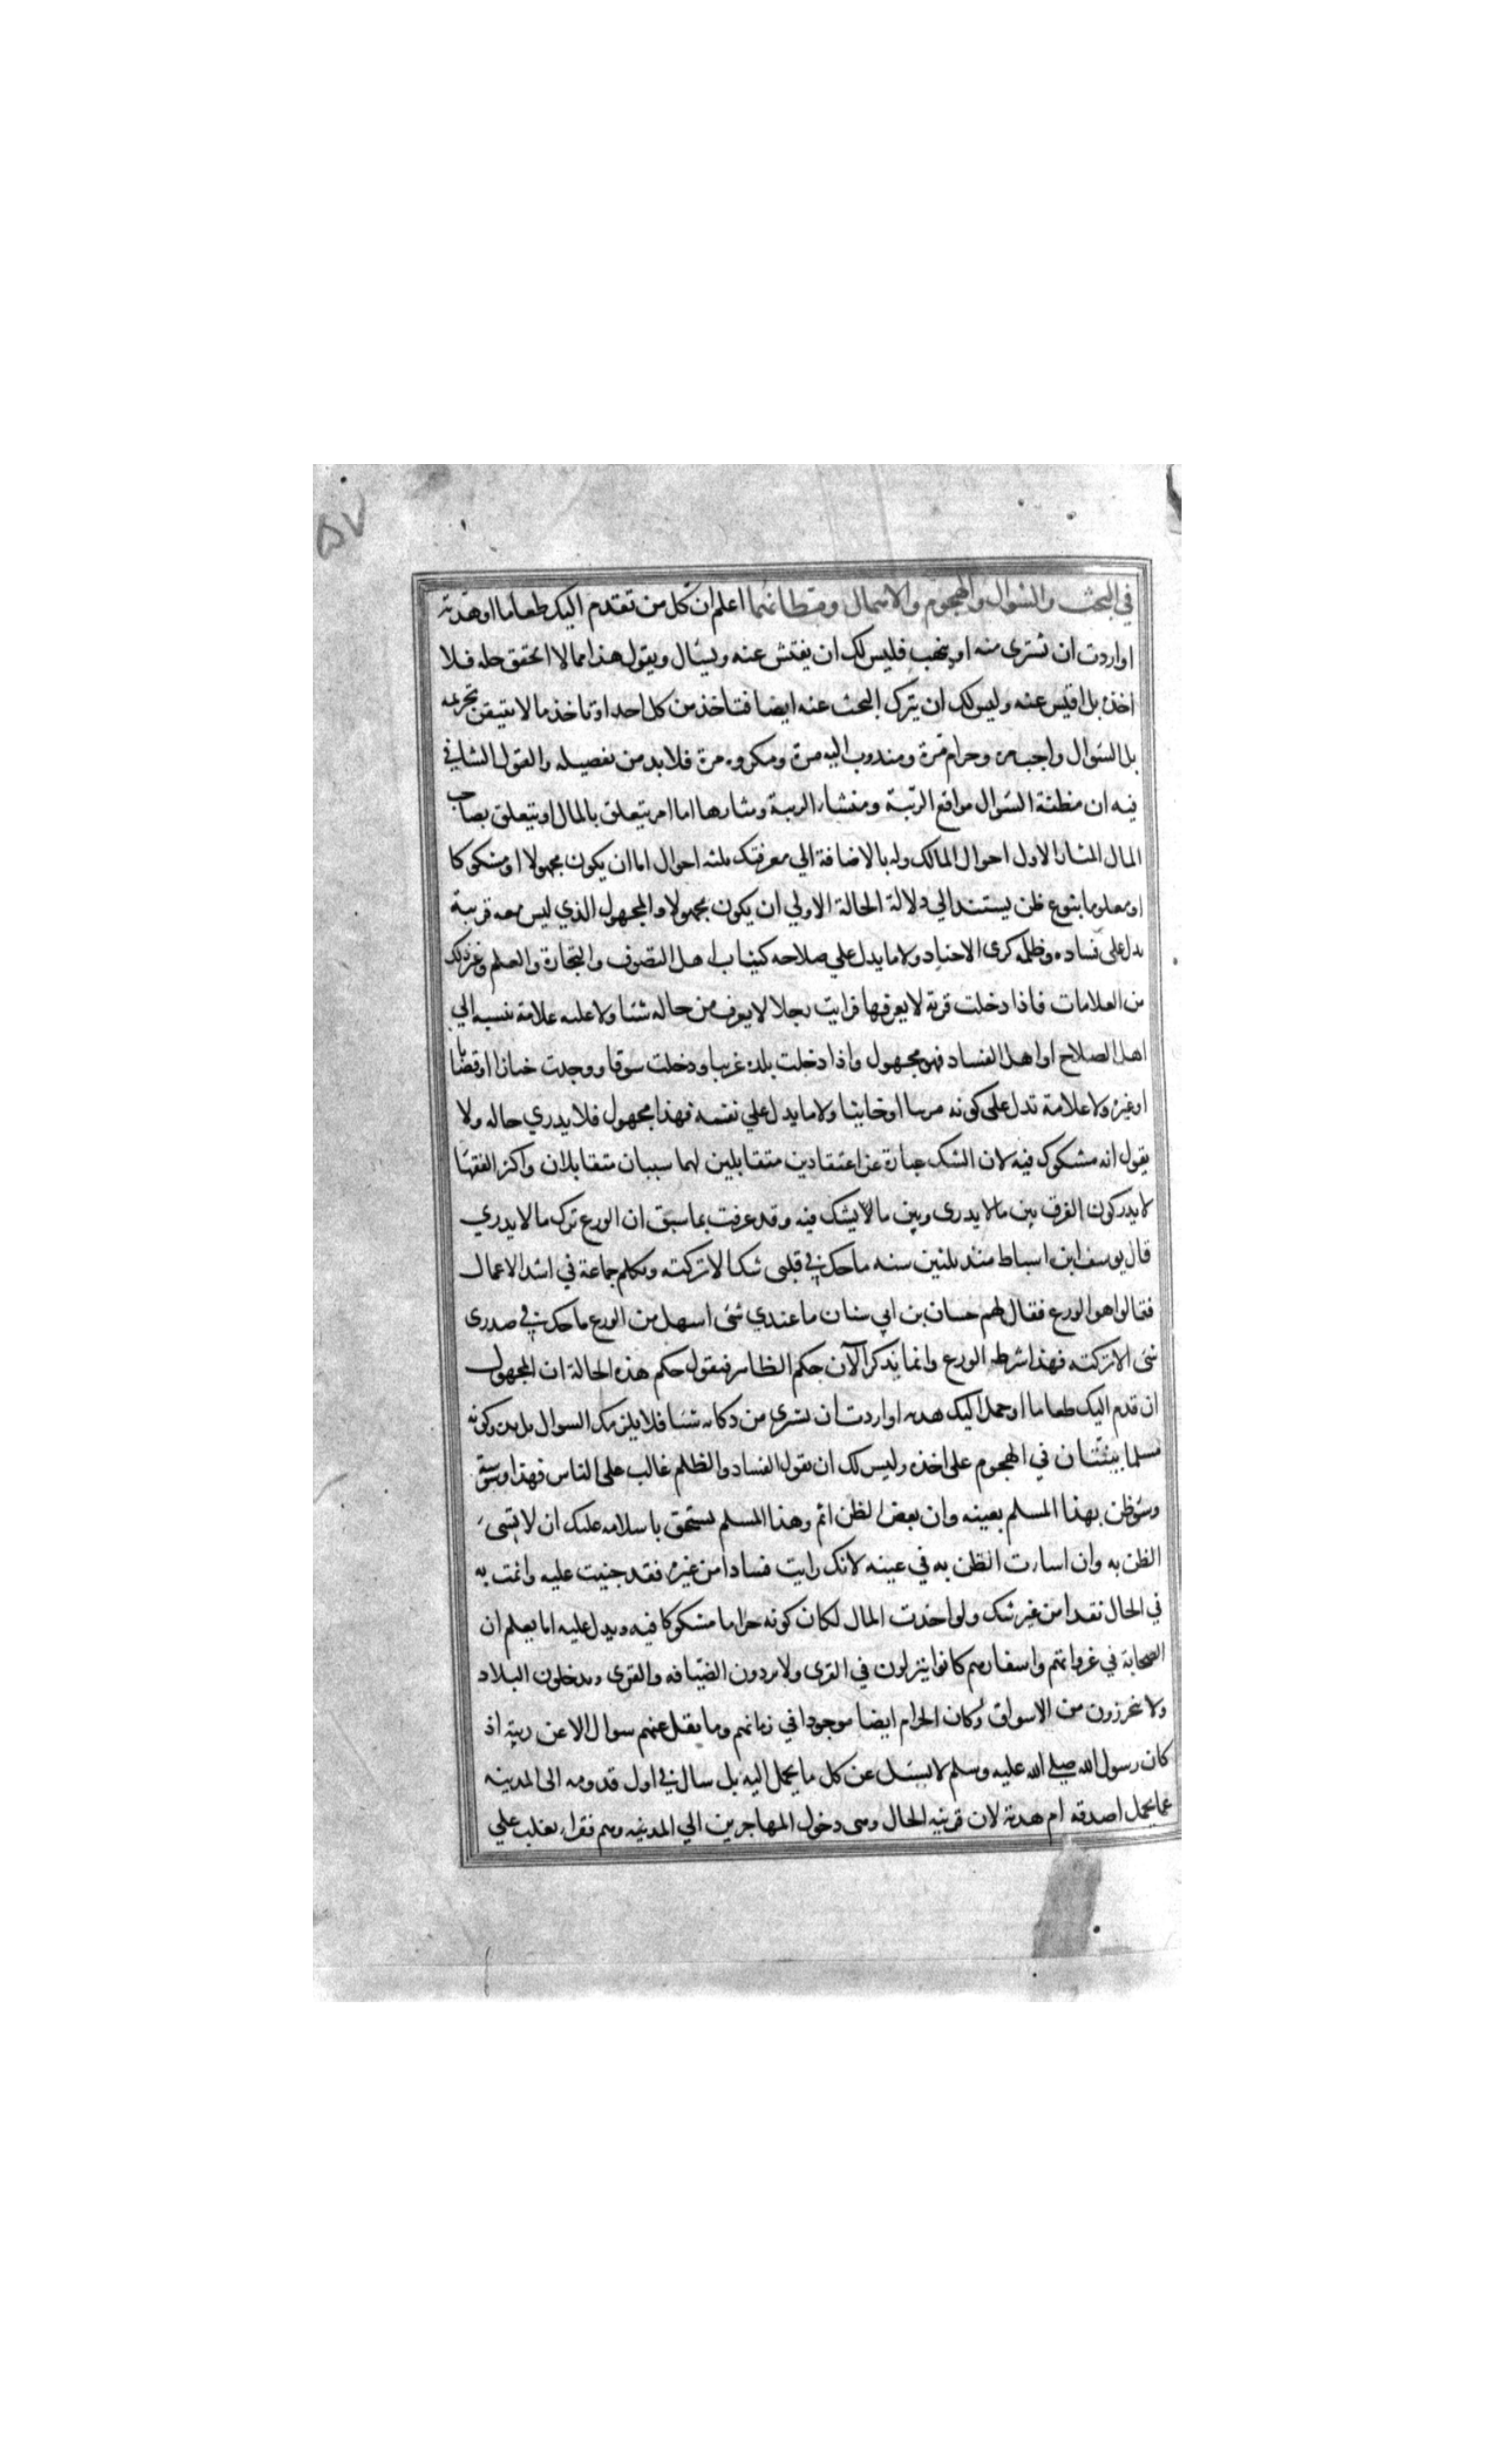 ۵۷
في البحث والسوال والهجوم والاهمال ومظانهما اعلم ان كل من تقدم اليك طعاما او هدية
او اردت ان تشترى منه او يتهب فليس لك ان يفتش عنه ويسال ويقول هذا مما لا اتحقق حله فلا
اخذه بل افتش عنه وليس لك ان يترك البحث عنه ايضا فتاخذ من كل احد او تاخذ ما لا يتيقن تحريمه
بل السوال واجب مرة وحرام مرة ومندوب اليه مرة ومكروه مرة فلابد من تفصيله والقول الشافي
فيه ان مظنة السوال مواقع الريبة ومنشاء الريبة ومثارها اما امر يتعلق بالمال او يتعلق بصاحب
المال المثار الاول احوال المالك وله بالاضافة الي معرفتك ثلثه احوال اما ان يكون مجهولا او مشكوكا
او معلوما بنوع ظن يستند الي دلالة الحالة الاولي ان يكون مجهولا والمجهول الذي ليس معه قرينة
يدل على فساده وظلمه كزى الاجناد ولا ما يدل علي صلاحه كثياب اهل التصوف والتجارة والعلم وغير ذلك
من العلامات فاذا دخلت قرية لا يعرفها فرايت رجلا لا يعرف من حاله شئا ولا عليه علامة نسبه الي
اهل الصلاح او اهل الفساد فهو مجهول واذا دخلت بلده غريبا ودخلت سوقا ووجدت خبازا او قصابا
او غيره ولا علامة تدل على كونه مريبا او خاينا ولا ما يدل علي نفسه فهذا مجهول فلا يدري حاله ولا
يقول انه مشكوك فيه لان الشك عبارة عن اعتقادين متقابلين لهما سببان متقابلان واكثر الفقها
لا يدركون الفرق بين ما لا يدرى وبين ما لا يشك فيه وقد عرفت بما سبق ان الورع ترك ما لا يدري
قال يوسف ابن اسباط منذ ثلثين سنه ما حك في قلبى شك الا تركته وتكلم جماعة في اشد الاعمال
فقالوا هو الورع فقال لهم حسان بن ابي سنان ما عندي شى اسهل من الورع ما حك في صدرى
شى الا تركته فهذا شرط الورع وانما يذكر الآن حكم الظاهر فيقول حكم هذه الحالة ان المجهول
ان قدم اليك طعاما او حمل اليك هديه او اردت ان تشرى من دكانه شئا فلا يلزمك السوال بل يده وكونه
مسلما بيتتان في الهجوم على اخذه وليس لك ان يقول الفساد والظلم غالب على الناس فهذا وسوسة
وسو ظن بهذا المسلم بعينه وان بعض الظن اثم وهذا المسلم يستحق باسلامه عليك ان لا يسىء
الظن به وان اسات الظن به في عينه لانك رايت فسادا من غيره فقد جنيت عليه واثمت به
في الحال نقدا من غير شك ولو اخذت المال لكان كونه حراما مشكوكا فيه ويدل عليه اما يعلم ان
الصحابة في غزواتهم واسفارهم كانوا ينزلون في القرى ولا يردون الضيافه والقرى ويدخلون البلاد
ولا يحرزون من الاسواق وكان الحرام ايضا موجودا في زمانهم وما نقل عنهم سوال الا عن ريبة اذ
كان رسول الله صلي الله عليه وسلم لا يسئل عن كل ما يحمل اليه بل سال في اول قدومه الى المدينه
عما يحمل اصدقه ام هدية لان قرينه الحال وهى دخول المهاجرين الي المدينه وهم فقراء يغلب علي